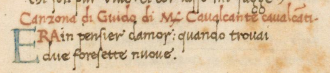 Canzona di Guido di Mr Caualcante caualcāti·
ERA in pensier damor: quando trouai
due foresette nuoue.